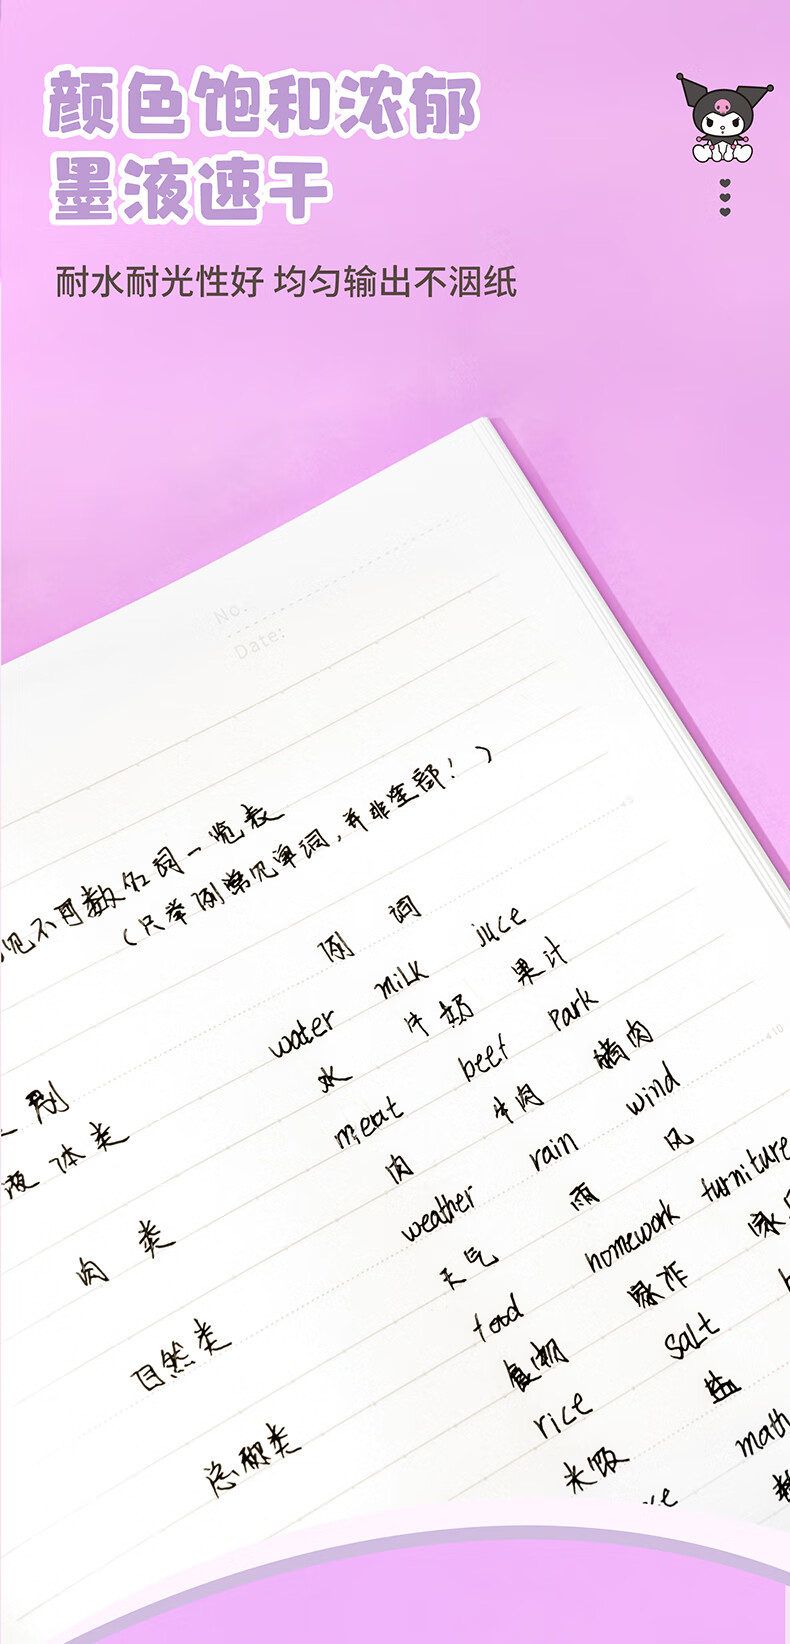 颜色饱和浓郁
墨液速干
耐水耐光性好 均匀输出不洇纸
No.
Date:
见不可数名词一览表
(只举例常见单词,并非全部!)
例 词
类别
water milk juce
液体类
水 牛奶 果汁
meat beef Park
肉类
肉 牛肉 猪肉
weather rain wind
自然类
天气 雨 风
food homework furniture
总称类
食物 家作 家
rice salt
米饭 盐
math
5
10